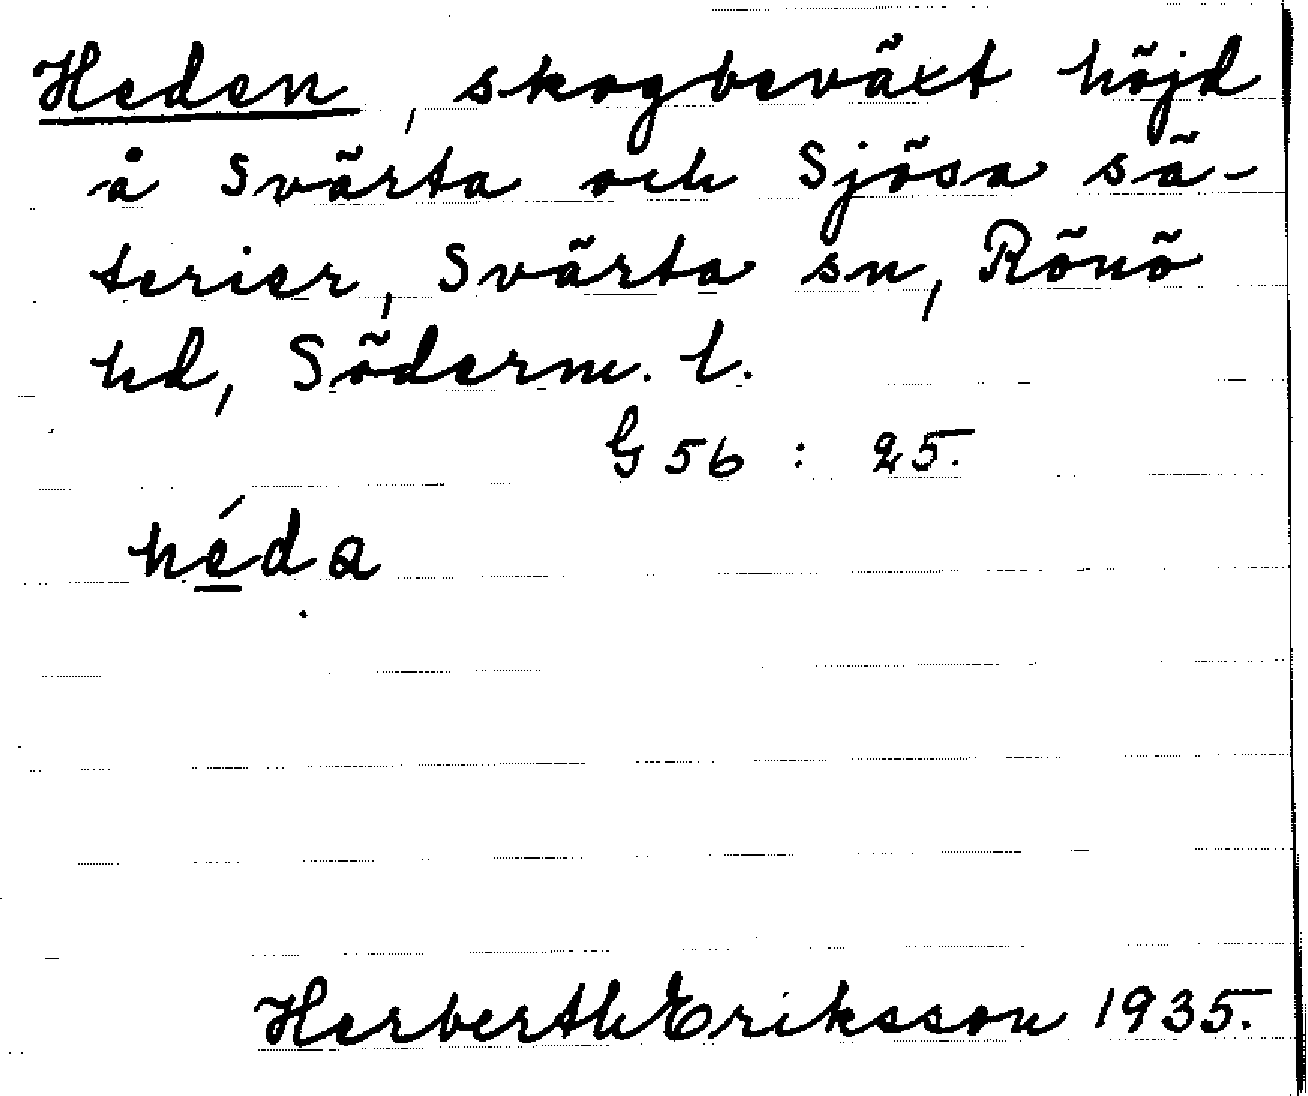 Heden, skogbeväxt höjd
å Svärta och Sjösa sä-
terier, Svärta sn, Rönö
hd, Söderm. l.
G 56 : 25.
héda
Herberth Eriksson 1935.